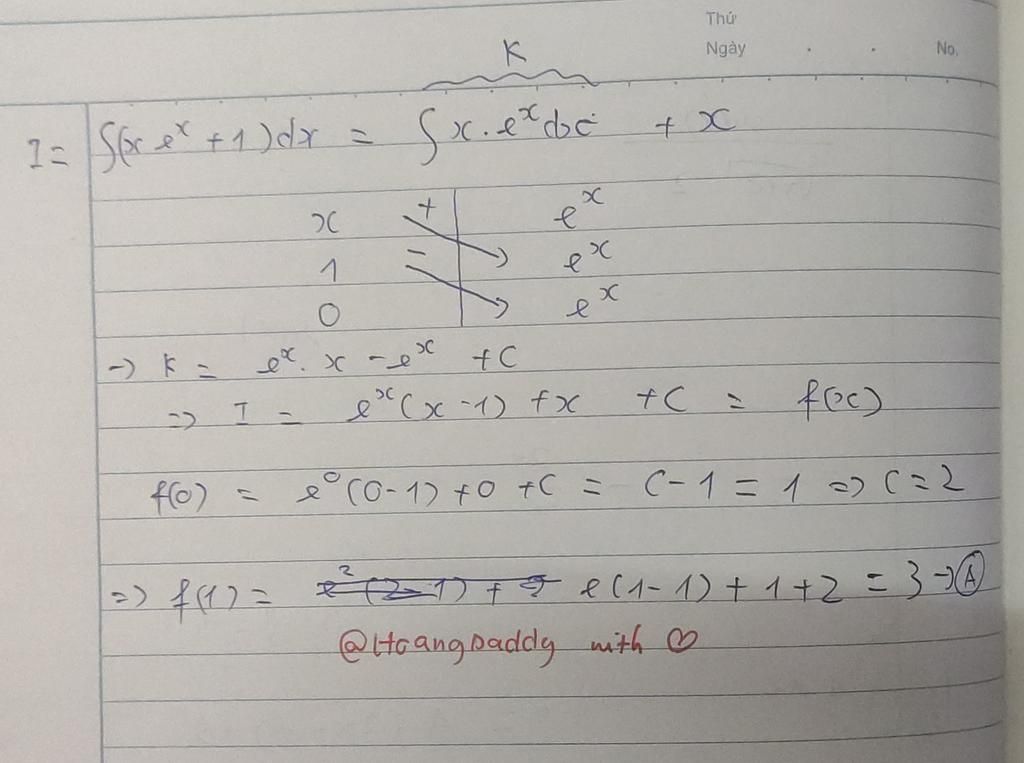 Thứ
Ngày . . No.
K
I = ∫(x e^x + 1) dx = ∫ x . e^x dx + x
x + e^x
1 - e^x
0 e^x
→ K = e^x . x - e^x + C
=> I = e^x (x - 1) + x + C = f(x)
f(0) = e^0 (0 - 1) + 0 + C = C - 1 = 1 => C = 2
=> f(1) = e(1 - 1) + 1 + 2 = 3 → Ⓐ
@HoangDaddy with ♡